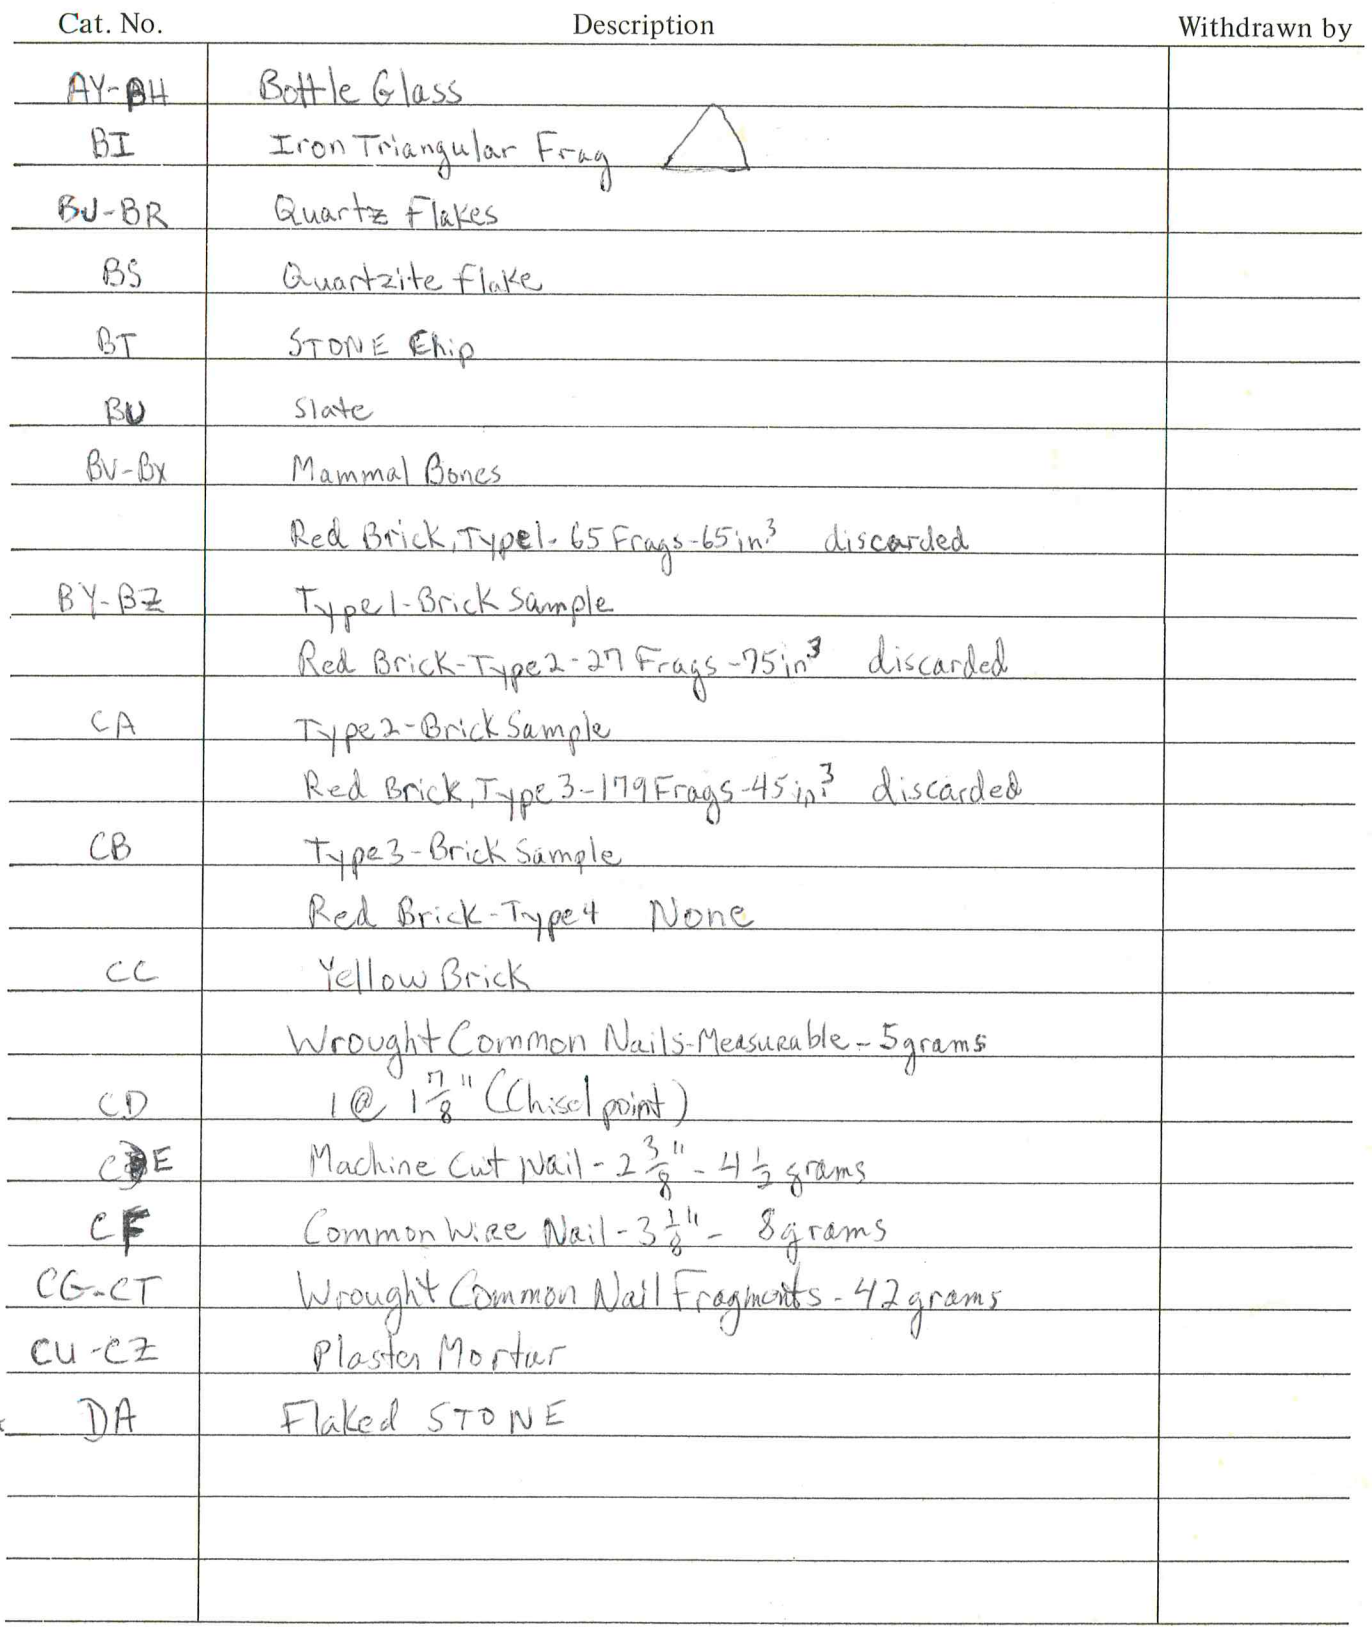 Cat. No. Description Withdrawn by
AY-BH Bottle Glass
BI Iron Triangular Frag
BJ-BR Quartz Flakes
BS Quartzite flake
BT STONE Chip
BU Slate
BV-BX Mammal Bones
Red Brick, Type 1- 65 Frags-65in.³ discarded
BY-BZ Type 1-Brick Sample
Red Brick-Type 2-27 Frags-75in³ discarded
CA Type 2-Brick Sample
Red Brick, Type 3-179 Frags-45 in.³ discarded
CB Type 3-Brick Sample
Red Brick-Type 4 None
CC Yellow Brick
Wrought Common Nails-Measurable-5grams
CD 1 @ 1 7/8" (Chisel point)
CE Machine Cut Nail-2 3/8"-4 1/2 grams
CF Common Wire Nail-3 1/8"- 8grams
CG-CT Wrought Common Nail Fragments-42grams
CU-CZ Plaster Mortar
DA Flaked STONE